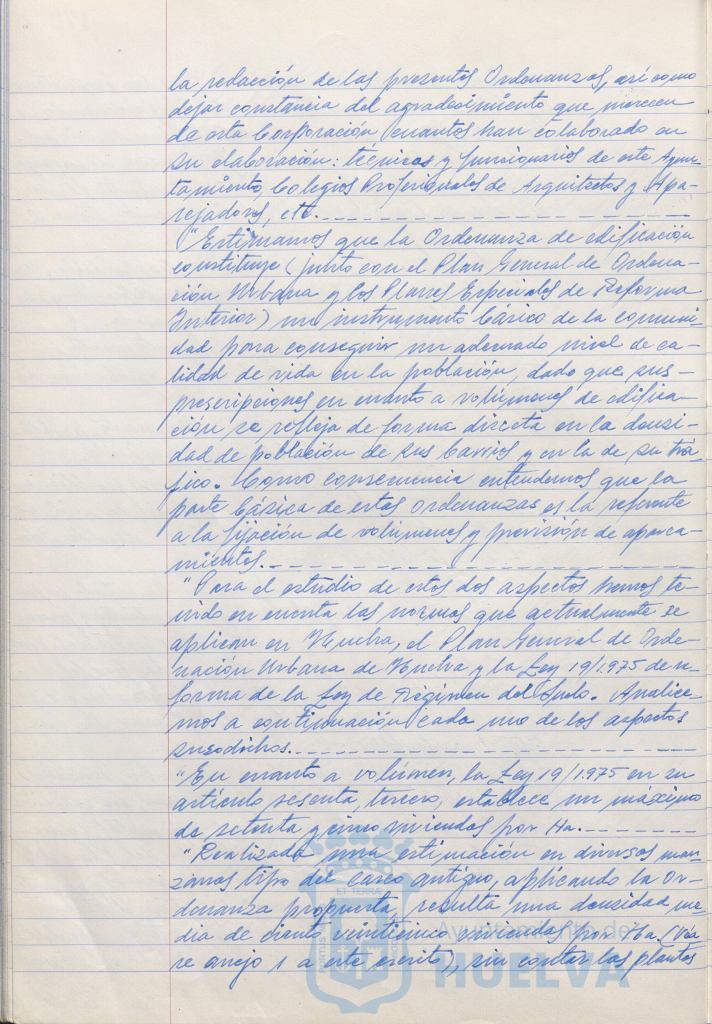 la redacción de las presentes Ordenanzas, así como
dejar constancia del agradecimiento que merecen
de esta Corporación cuantos han colaborado en
su elaboración: técnicos y funcionarios de este Ayun-
tamiento, Colegios Profesionales de Arquitectos y Apa-
rejadores, etc.
"Estimamos que la Ordenanza de edificación
constituye (junto con el Plan General de Ordena-
ción Urbana y los Planes Especiales de Reforma
Interior) un instrumento básico de la comuni-
dad para conseguir un adecuado nivel de ca-
lidad de vida en la población, dado que sus
prescripciones en cuanto a volúmenes de edifica-
ción se refleja de forma directa en la densi-
dad de población de sus barrios y en la de su trá-
fico. Como consecuencia entendemos que la
parte básica de estas Ordenanzas es la referente
a la fijación de volúmenes y previsión de aparca-
mientos.
"Para el estudio de estos dos aspectos hemos te-
nido en cuenta las normas que actualmente se
aplican en Huelva, el Plan General de Orde-
nación Urbana de Huelva y la Ley 19/1.975 de re-
forma de la Ley de Régimen del Suelo. Analice-
mos a continuación cada uno de los aspectos
susodichos.
"En cuanto a volúmen, la Ley 19/1.975 en su
artículo sesenta, tercero, establece un máximo
de setenta y cinco viviendas por Ha.
"Realizada una estimación en diversas man-
zanas tipo del casco antiguo, aplicando la Or-
denanza propuesta, resulta una densidad me-
dia de ciento veinticinco viviendas por Ha. (Véa-
se anejo 1 a este escrito), sin contar las plantas
ET TERRAE
Ayuntamiento de
HUELVA